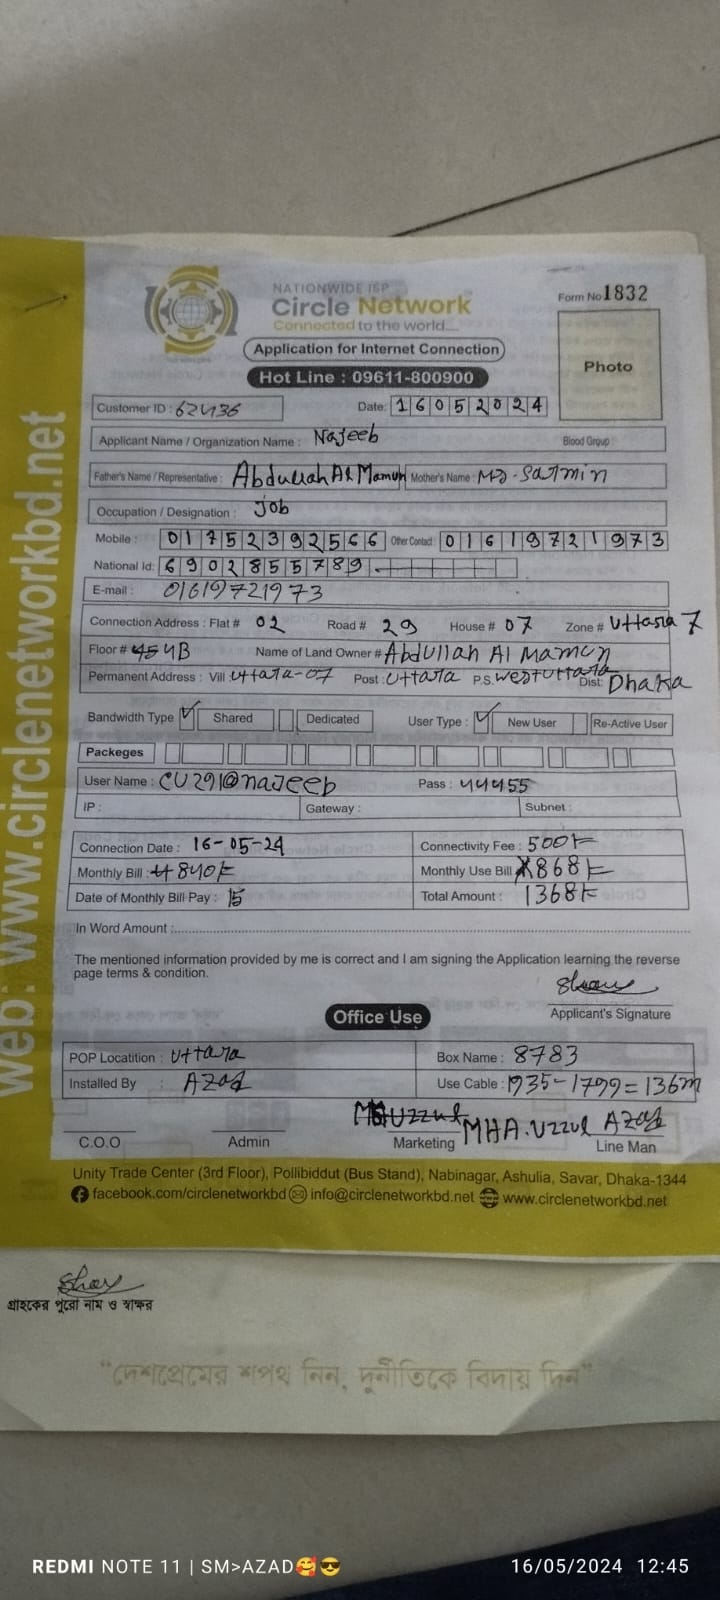 NATIONWIDE ISP
Circle Network
Connected to the world....
Form No 1832
Application for Internet Connection
Hot Line : 09611-800900
Photo
Customer ID : 62436
Date: 16052024
Applicant Name / Organization Name : Najeeb Blood Group :
Father's Name / Representative : Abdullah Al Mamun Mother's Name : MS. Sarmin
Occupation / Designation : job
Mobile : 01752392566 Other Contact : 01619721973
National Id: 6902855789
E-mail : 01619721973
Connection Address : Flat # 02 Road # 29 House # 07 Zone # Uttara 7
Floor # 4B Name of Land Owner # Abdullah Al Mamun
Permanent Address : Vill Uttara-07 Post : Uttara P.S. West Uttara Dist: Dhaka
Bandwidth Type Shared Dedicated User Type : New User Re-Active User
Packeges
User Name : CU291@najeeb Pass : 44455
IP : Gateway : Subnet :
Connection Date : 16-05-24 Connectivity Fee : 500/-
Monthly Bill : 840/- Monthly Use Bill 868/-
Date of Monthly Bill Pay : 15 Total Amount : 1368/-
In Word Amount :
The mentioned information provided by me is correct and I am signing the Application learning the reverse
page terms & condition.
Applicant's Signature
Office Use
POP Locatition : Uttara Box Name : 8783
Installed By : AZad Use Cable : 1935-1799=136m
MHA.Uzzul AZad
C.O.O Admin Marketing Line Man
Unity Trade Center (3rd Floor), Pollibiddut (Bus Stand), Nabinagar, Ashulia, Savar, Dhaka-1344
facebook.com/circlenetworkbd info@circlenetworkbd.net www.circlenetworkbd.net
web: www.circlenetworkbd.net
গ্রাহকের পুরো নাম ও স্বাক্ষর
"দেশপ্রেমের শপথ নিন, দুর্নীতিকে বিদায় দিন"
REDMI NOTE 11 | SM>AZAD🥰😎
16/05/2024 12:45